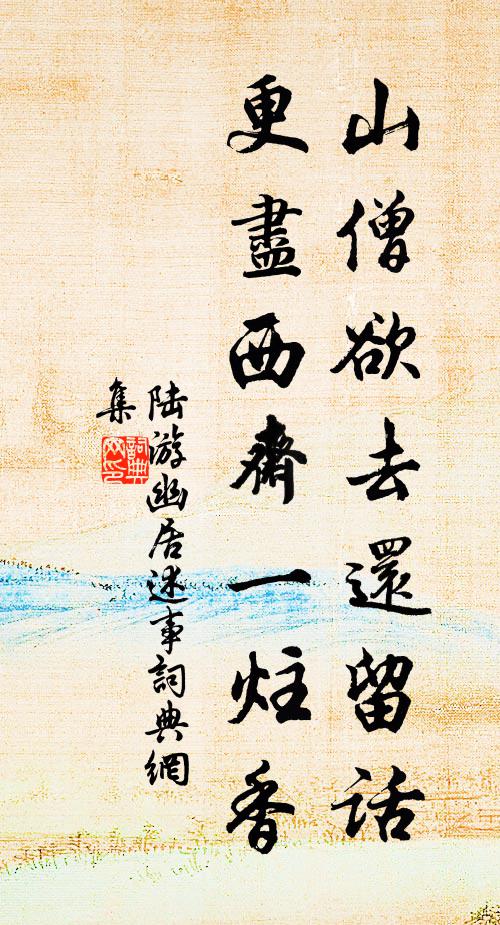 山僧欲去還留話
更盡西齋一炷香
陆游幽居述事詞典網
集
詞典
网印